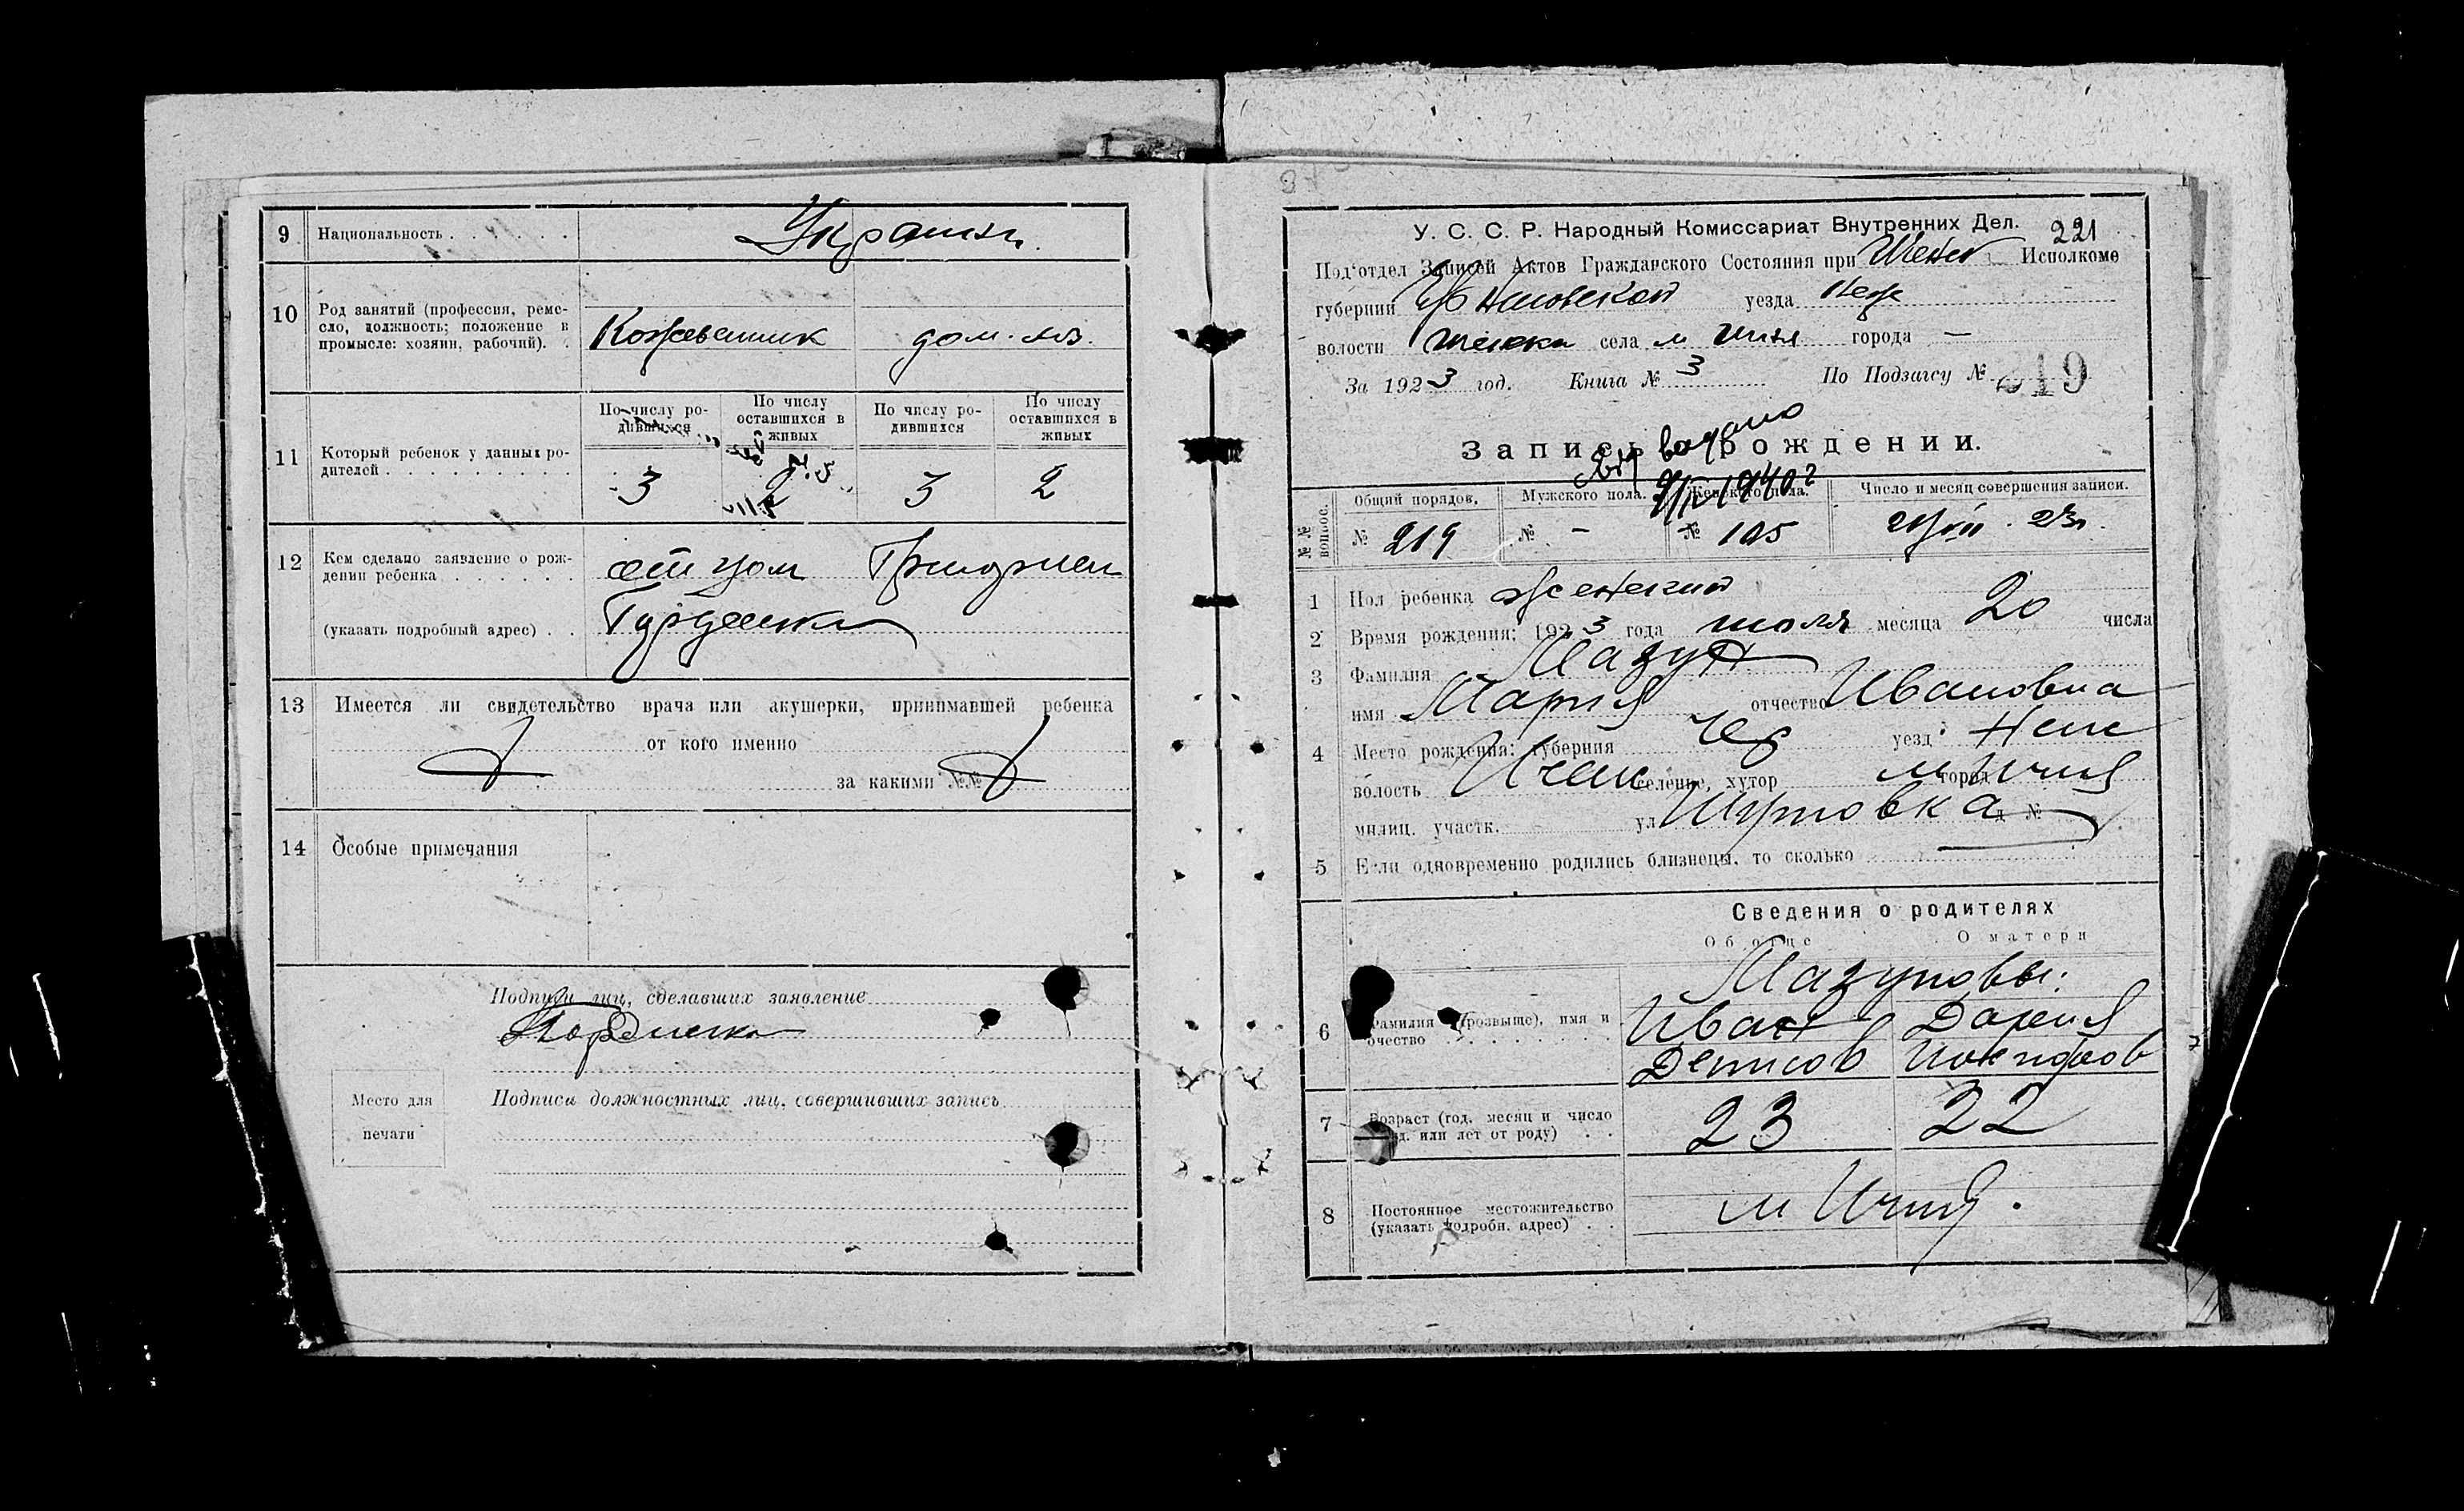 9 Национальность . . . . . . Украин.
10 Род занятий (профессия, ремесло, должность; положение в промысле: хозяин, рабочий). .
Кожевенник дом. хоз.
11 Который ребенок у данных родителей . . . . . . . . . .
По числу родившихся По числу оставшихся в живых По числу родившихся По числу оставшихся в живых
3 2 3 2
12 Кем сделано заявление о рождении ребенка . . . . . . отцом
(указать подробный адрес) . .
13 Имеется ли свидетельство врача или акушерки, принимавшей ребенка
от кого именно
за какими №№
14 Особые примечания
Подписи лиц, сделавших заявление
Место для печати
Подписи должностных лиц, совершивших запись
У. С. С. Р. Народный Комиссариат Внутренних Дел.
221
Под'отдел Записей Актов Гражданского Состояния при Исполкоме
губернии уезда Неж
волости села м города —
За 1923 год. Книга № 3 По Подзагсу № 219
Запись о рождении.
№№ вопрос.
Общий порядов. Мужского пола. Женского пола. Число и месяц совершения записи.
№ 219 № - № 105
1 Пол ребенка женский
2 Время рождения: 1923 года июля месяца 20 числа
3 Фамилия Мазун
имя Мария отчество Ивановна
4 Место рождения: губерния Чер уезд Неж
волость Ичен селение, хутор город м Ичня
милиц. участк. ул д №
5 Если одновременно родились близнецы, то сколько
Сведения о родителях
Об отце О матери
6 Фамилия (прозвище), имя и очество . . . . . . . .
Мазуновы:
Иван Дария
Денисов
7 Возраст (год, месяц и число рожд. или лет от роду) . .
23 22
8 Постоянное местожительство (указать подробн. адрес) . .
м Ичня.